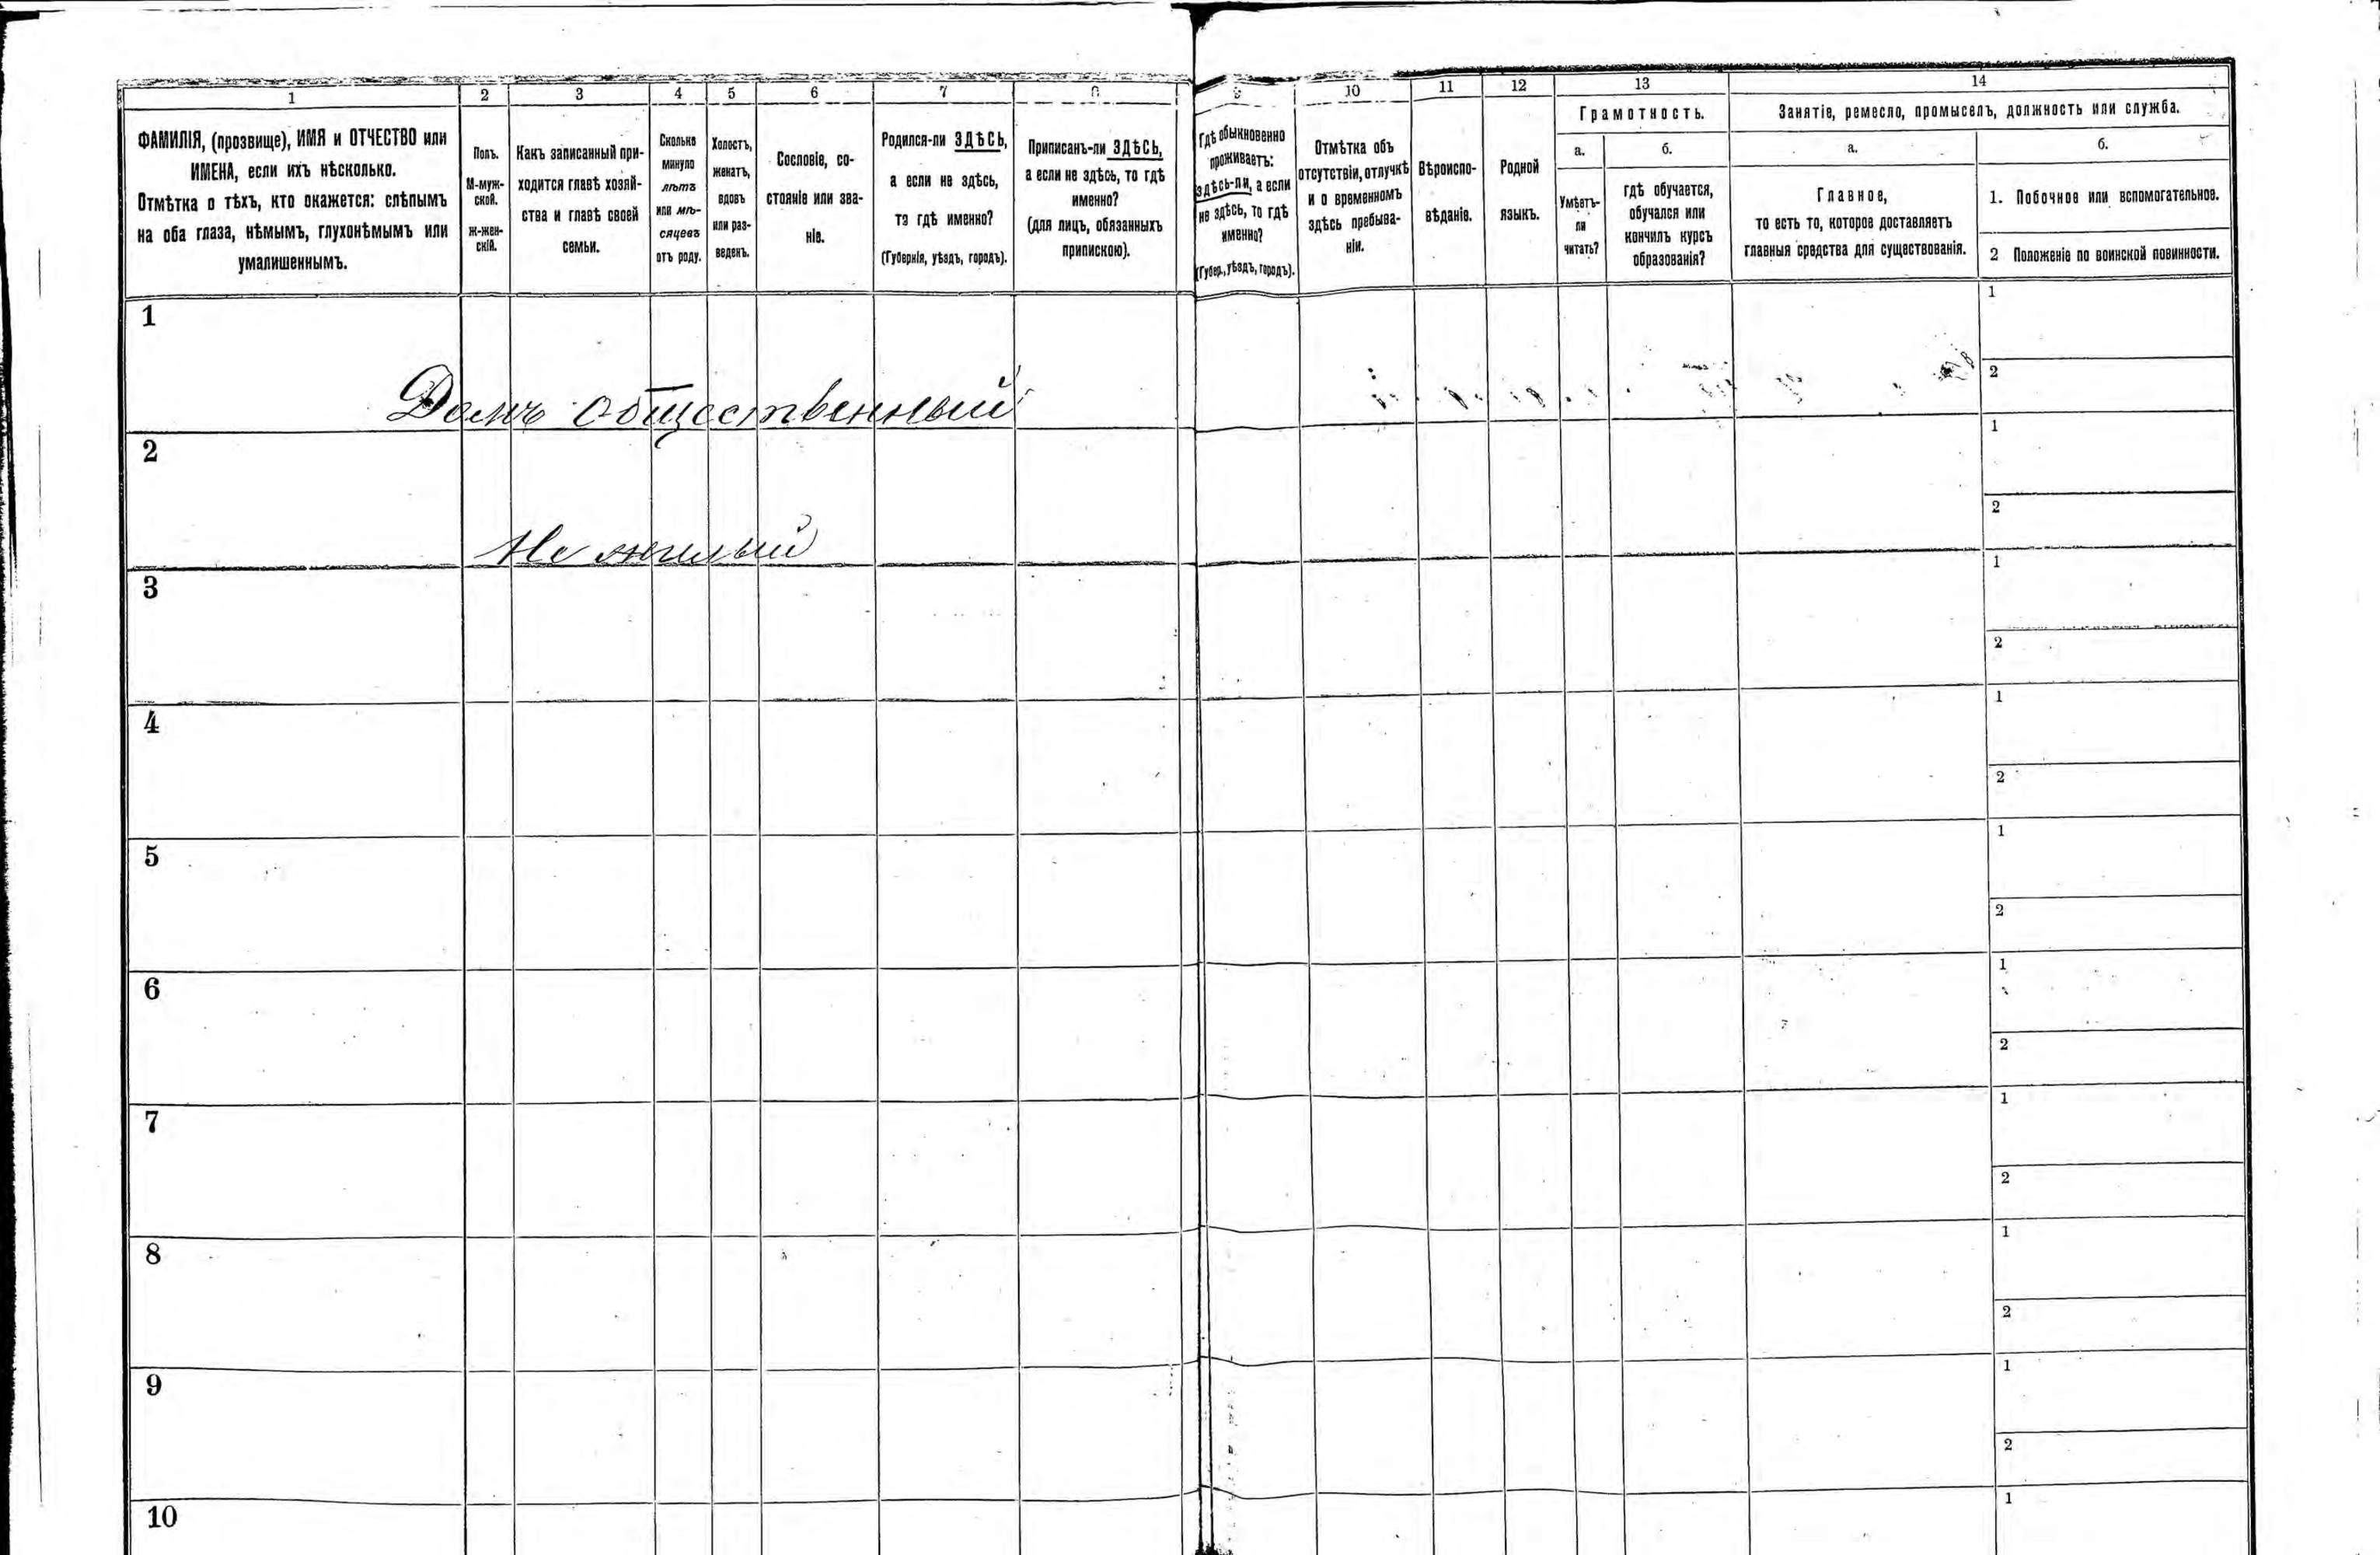 1 2 3 4 5 6 7 8 9 10 11 12 13 14
ФАМИЛІЯ, (прозвище), ИМЯ и ОТЧЕСТВО или
ИМЕНА, если ихъ нѣсколько.
Отмѣтка о тѣхъ, кто окажется: слѣпымъ
на оба глаза, нѣмымъ, глухонѣмымъ или
умалишеннымъ.
Полъ.
М-муж-
ской.
Ж-жен-
скій.
Какъ записанный при-
ходится главѣ хозяй-
ства и главѣ своей
семьи.
Сколько
минуло
лѣтъ
или мѣ-
сяцевъ
отъ роду.
Холостъ,
женатъ,
вдовъ
или раз-
веденъ.
Сословіе, со-
стояніе или зва-
ніе.
Родился-ли ЗДѢСЬ,
а если не здѣсь,
то гдѣ именно?
(Губернія, уѣздъ, городъ).
Приписанъ-ли ЗДѢСЬ,
а если не здѣсь, то гдѣ
именно?
(для лицъ, обязанныхъ
припискою).
Гдѣ обыкновенно
проживаетъ:
здѣсь-ли, а если
не здѣсь, то гдѣ
именно?
(Губер., уѣздъ, городъ).
Отмѣтка объ
отсутствіи, отлучкѣ
и о временномъ
здѣсь пребыва-
ніи.
Вѣроиспо-
вѣданіе.
Родной
языкъ.
Грамотность.
а.
Умѣетъ-
ли
читать?
б.
гдѣ обучается,
обучался или
кончилъ курсъ
образованія?
Занятіе, ремесло, промыселъ, должность или служба.
а.
Главное,
то есть то, которое доставляетъ
главныя средства для существованія.
б.
1. Побочное или вспомогательное.
2 Положеніе по воинской повинности.
1
1
2
Домъ общественный
2
1
2
Не жилый
3
1
2
4
1
2
5
1
2
6
1
2
7
1
2
8
1
2
9
1
2
10
1